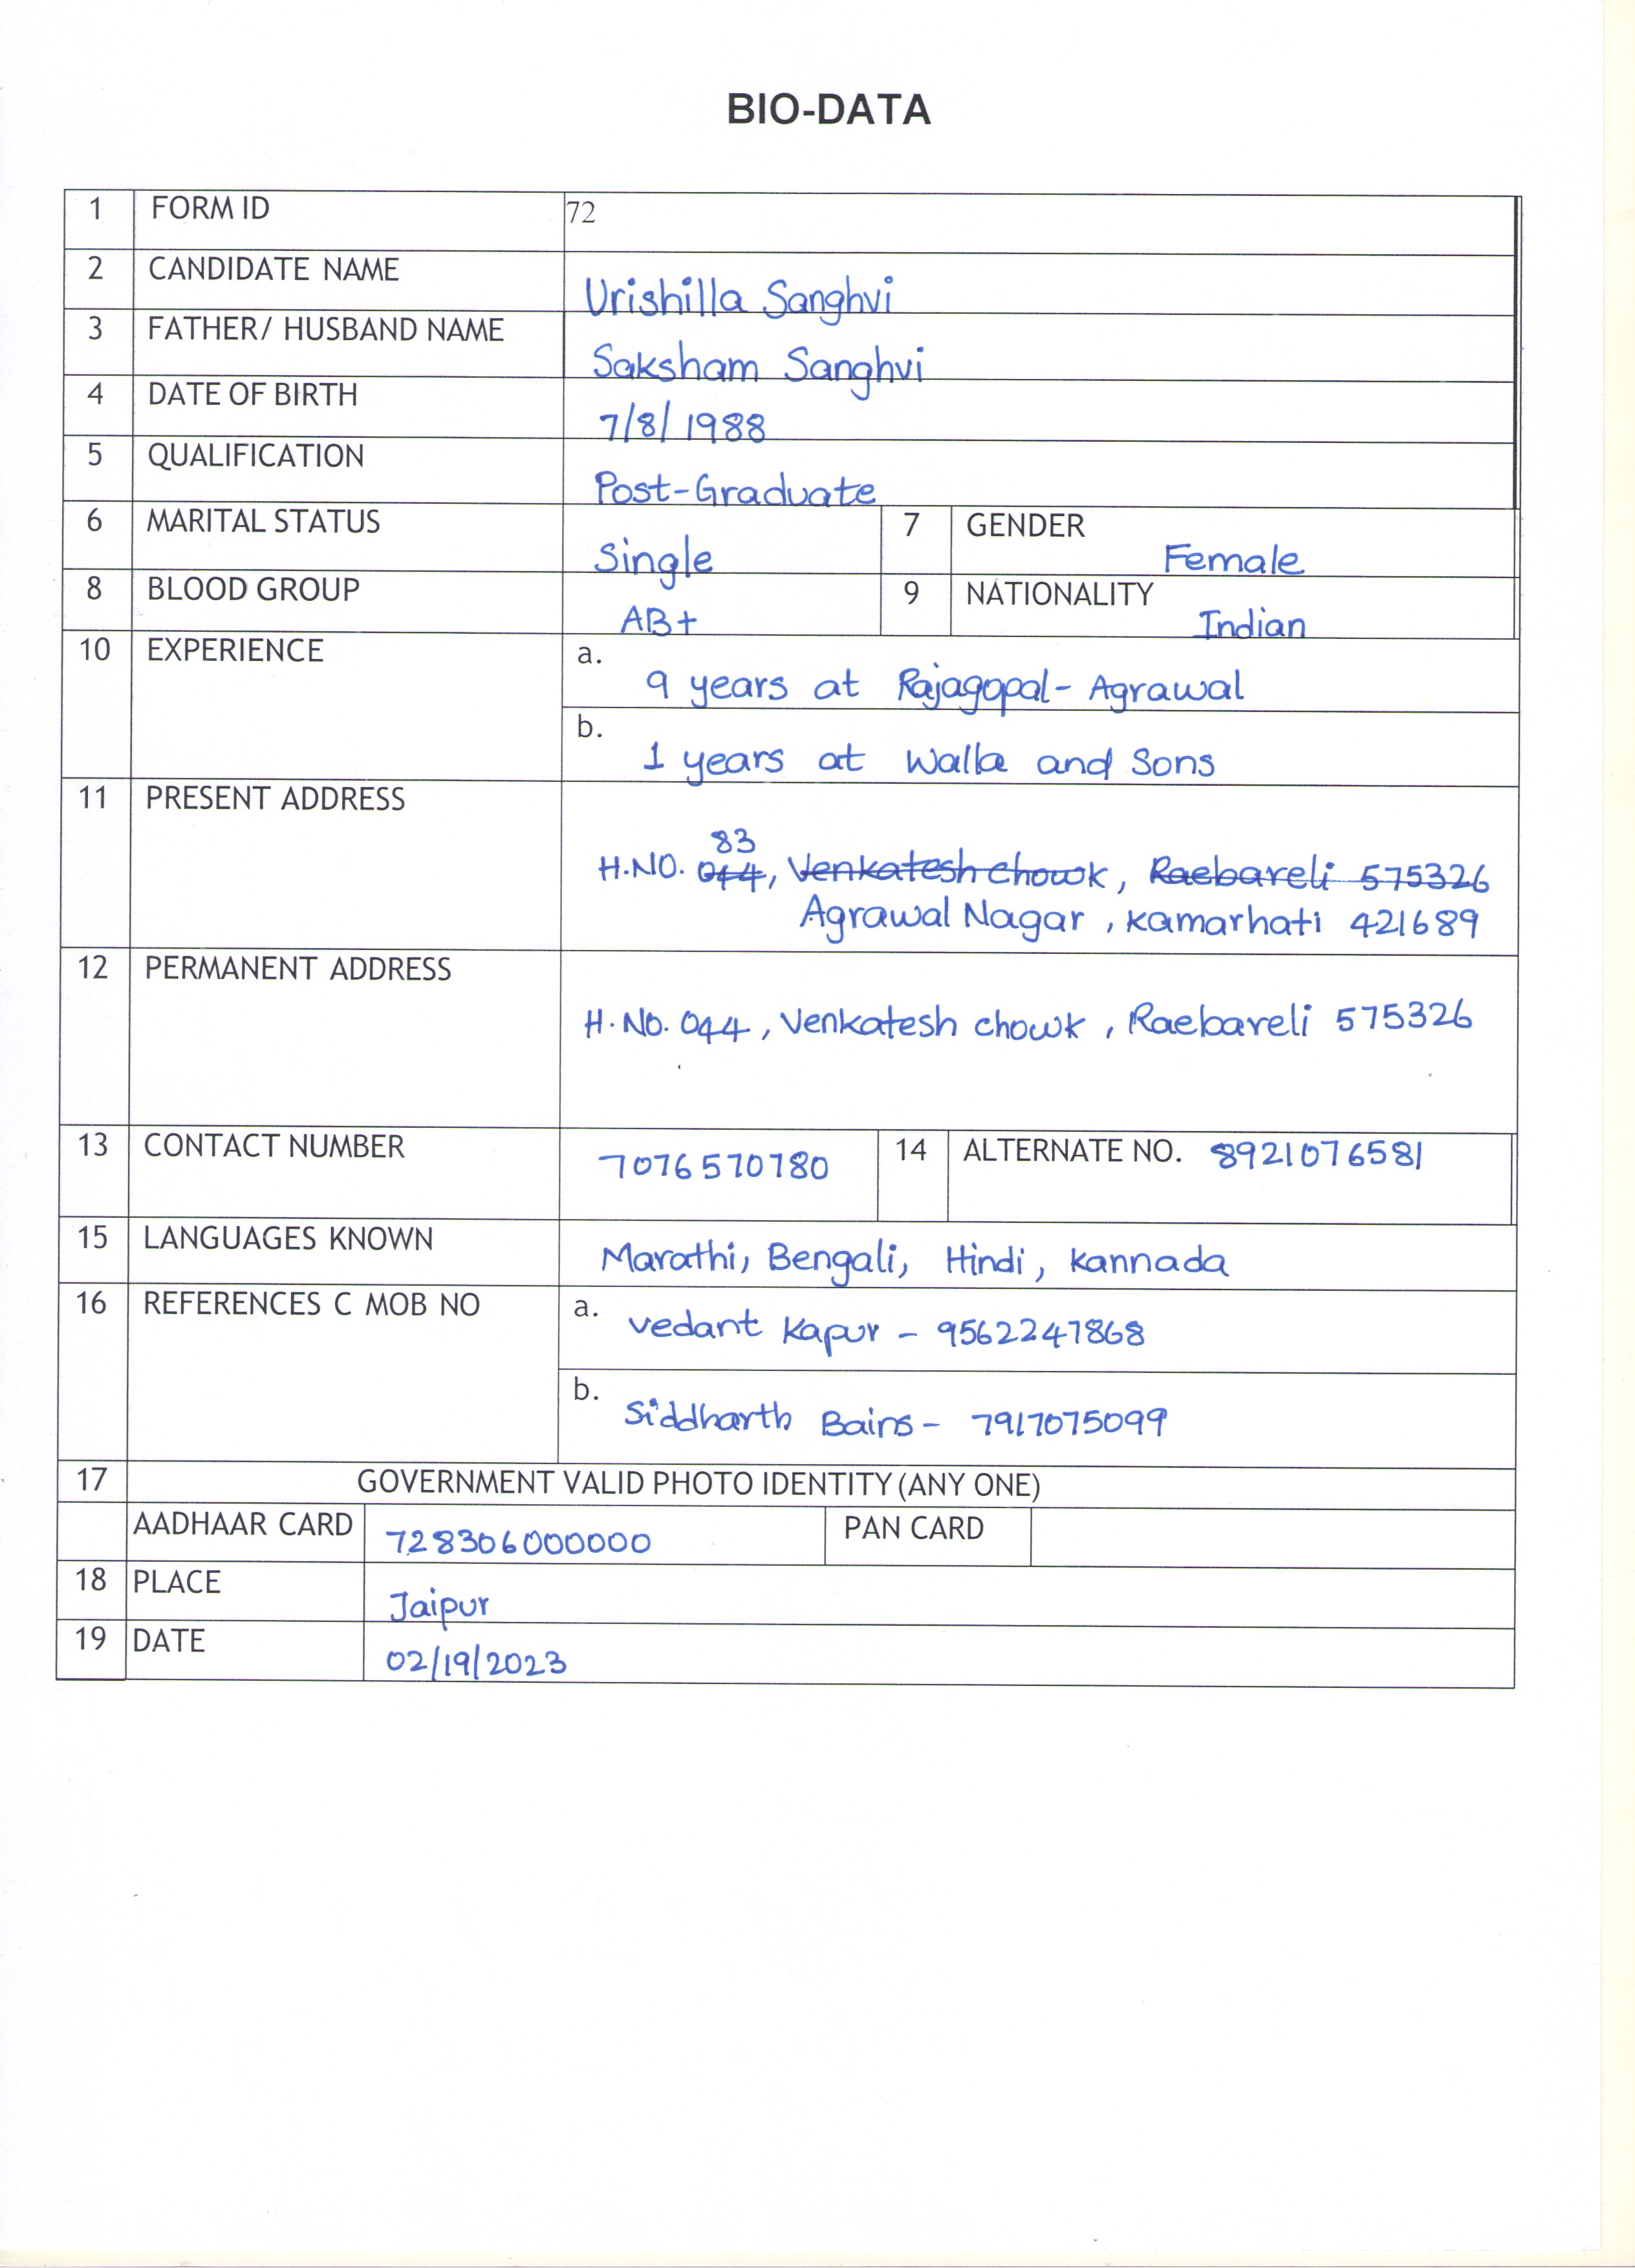 BIO-DATA
1 FORM ID 72
2 CANDIDATE NAME Urishilla Sanghvi
3 FATHER/ HUSBAND NAME Saksham Sanghvi
4 DATE OF BIRTH 7/8/1988
5 QUALIFICATION Post-Graduate
6 MARITAL STATUS Single 7 GENDER Female
8 BLOOD GROUP AB+ 9 NATIONALITY Indian
10 EXPERIENCE a. 9 years at Rajagopal-Agrawal
b. 1 years at Walla and Sons
11 PRESENT ADDRESS
83
H.NO. 044, Venkatesh Chowk, Raebareli 575326
Agrawal Nagar, Kamarhati 421689
12 PERMANENT ADDRESS
H.No. 044, Venkatesh chowk, Raebareli 575326
13 CONTACT NUMBER 7076570780 14 ALTERNATE NO. 8921076581
15 LANGUAGES KNOWN Marathi, Bengali, Hindi, Kannada
16 REFERENCES C MOB NO a. Vedant Kapur - 9562247868
b. Siddharth Bains - 7917075099
17 GOVERNMENT VALID PHOTO IDENTITY (ANY ONE)
AADHAAR CARD 728306000000 PAN CARD
18 PLACE Jaipur
19 DATE 02/19/2023